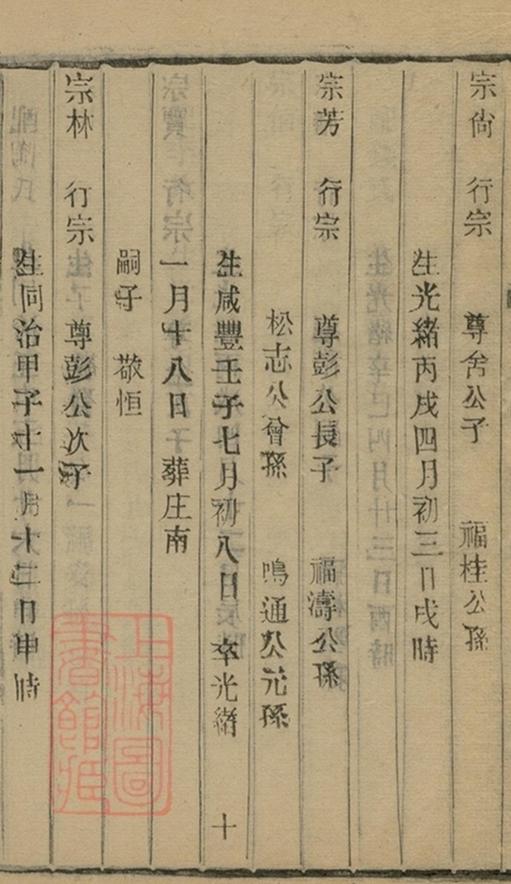 宗尙 行宗 尊舍公子 福桂公孫
生光緒丙戌四月初三日戌時
宗芳 行宗 尊彭公長子 福濤公孫
松志公曾孫 鳴通公元孫
生咸豐壬子七月初八日 卒光緒十
一月十八日 葬庄南
嗣子 敬恒
宗林 行宗 尊彭公次子
生同治甲子十一月十二日申時
上海圖書館藏